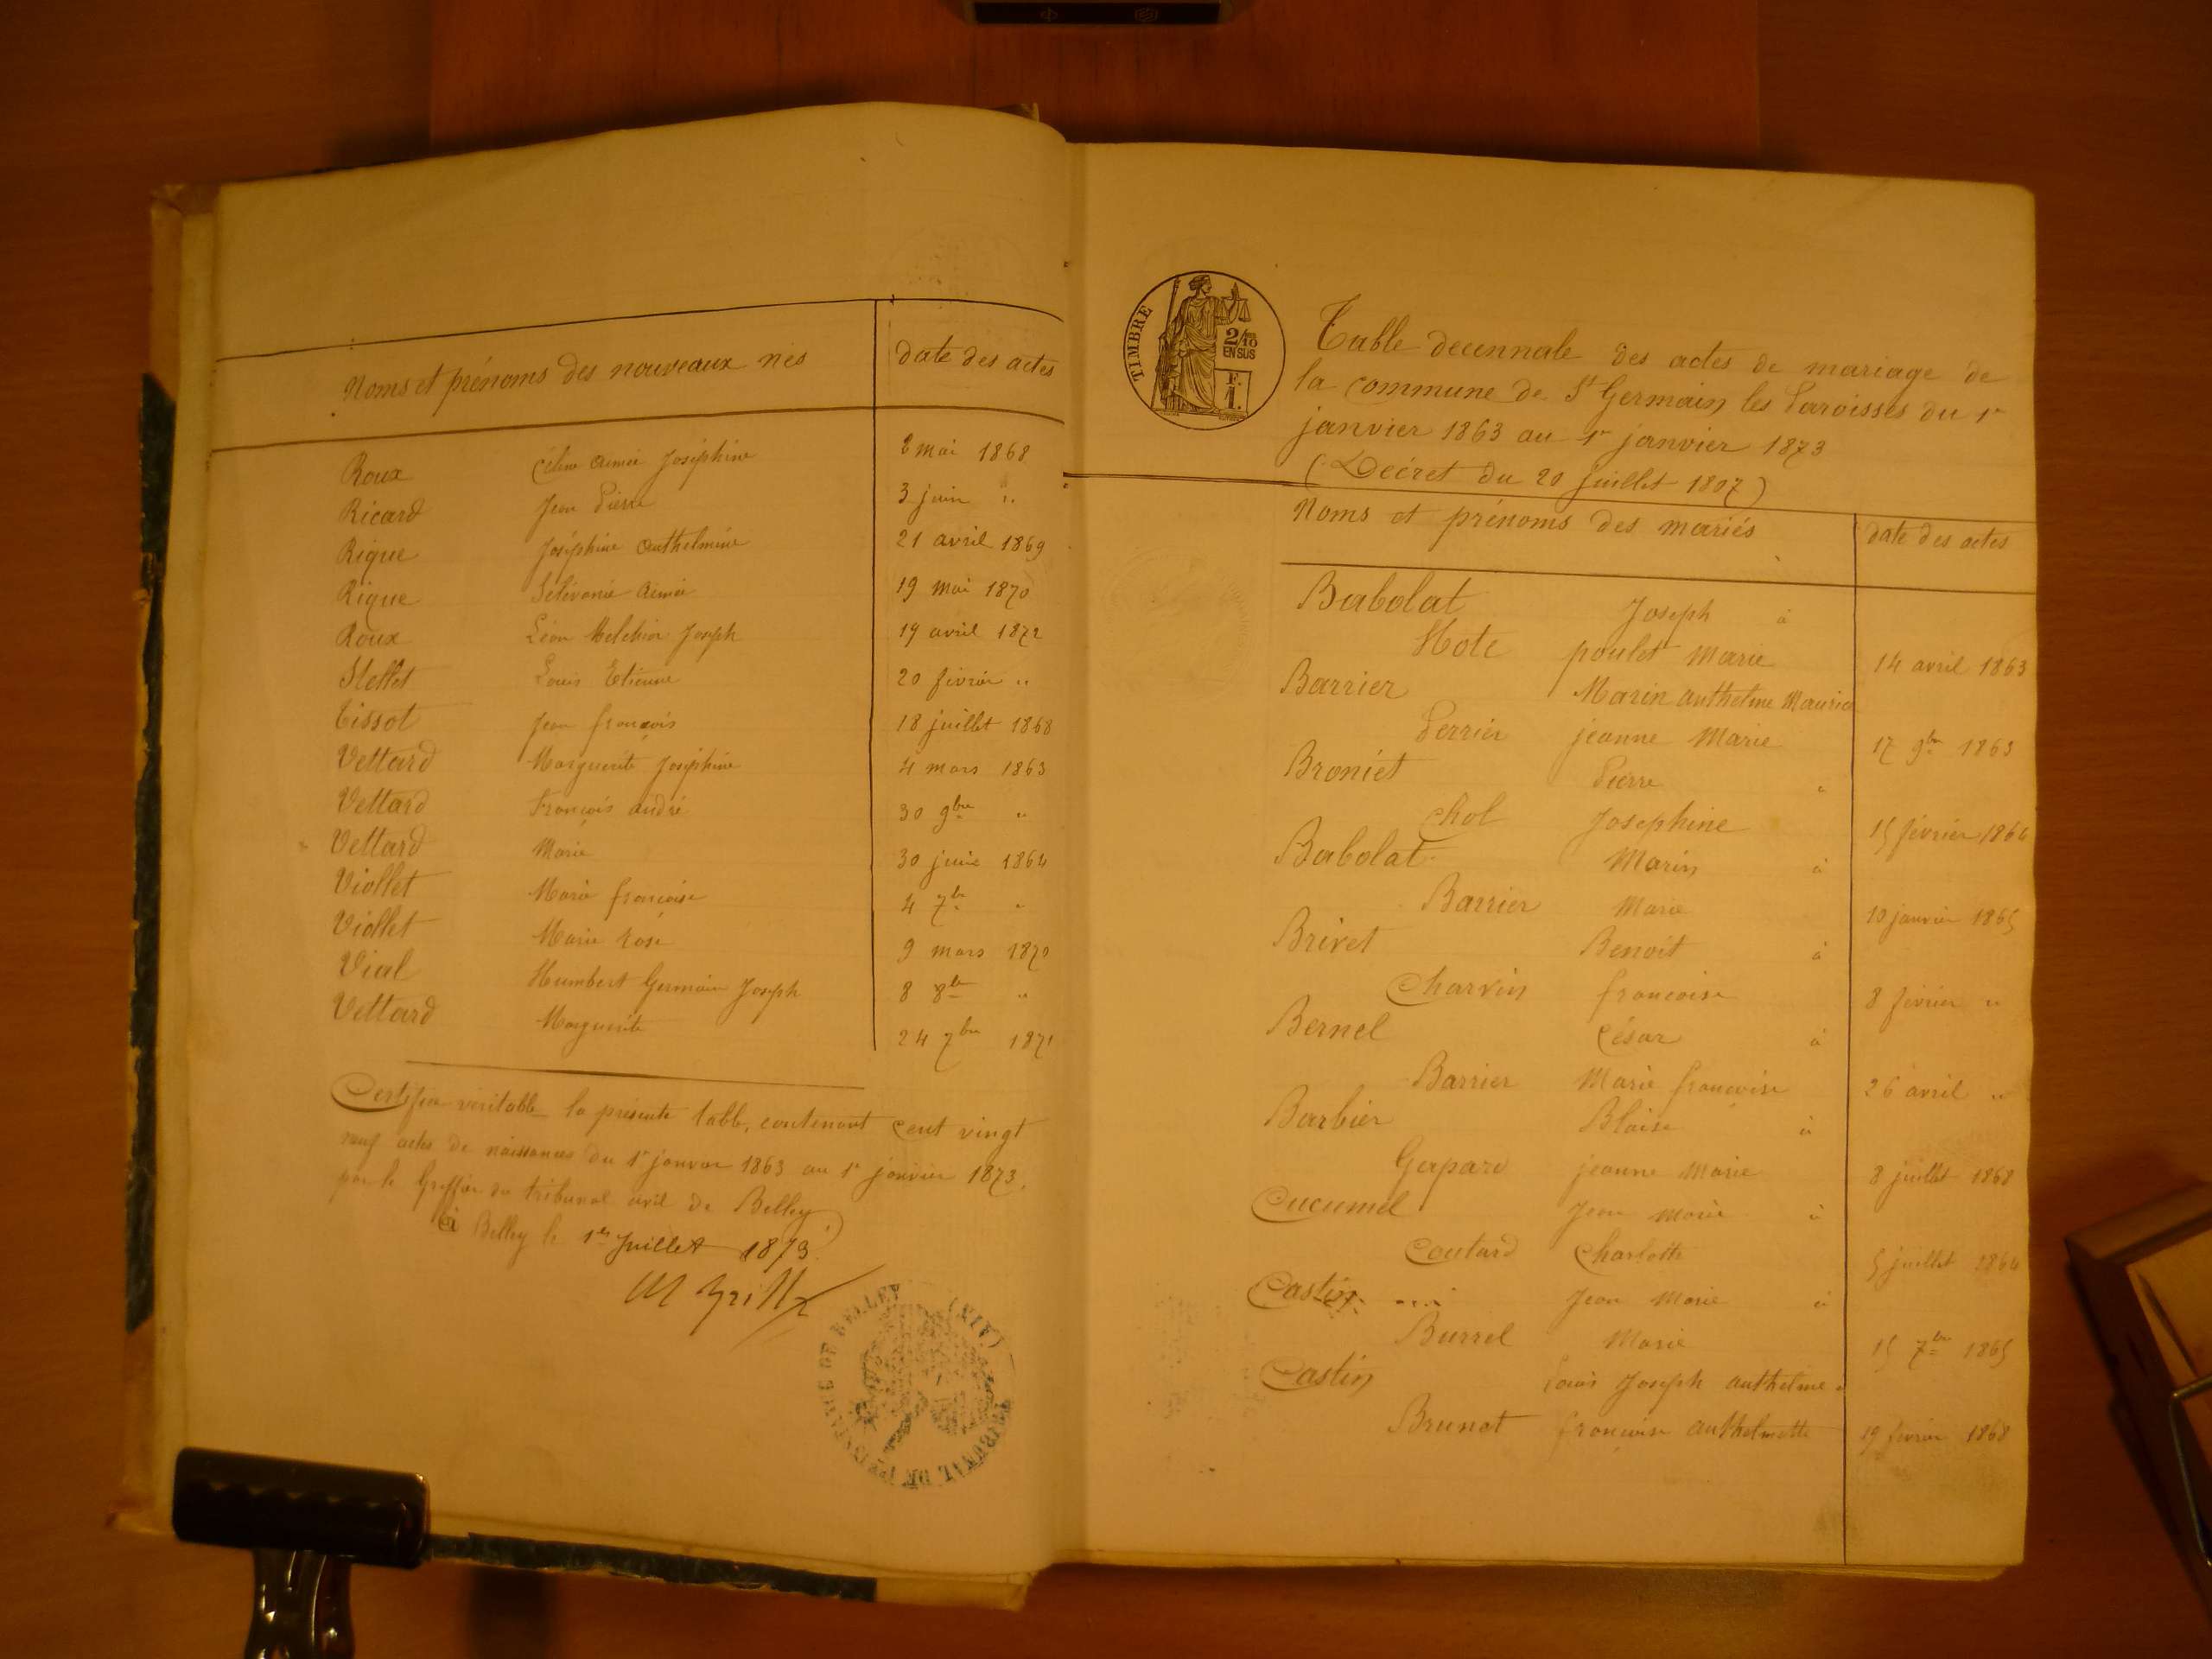 Noms et prénoms des nouveaux nés date des actes
Roux Célina Aimée Joséphine 2 mai 1868
Ricard Jean Pierre 3 juin "
Rique Joséphine Anthelmine 21 avril 1869
Rique Aimée 19 mai 1870
Roux Léon Melchior Joseph 19 avril 1872
Louis Etienne 20 février "
Tissot Jean françois 18 juillet 1868
Vettard Marguerite Joséphine 4 mars 1863
Vettard françois andré 30 9bre "
Vettard Marie 30 juin 1864
Viollet Marie françoise 4 7bre "
Viollet Marie rose 9 mars 1870
Vial Humbert Germain Joseph 8 8bre "
Vettard Marguerite 24 7bre 1871
Certifiée véritable la présente table, contenant cent vingt
neuf actes de naissances du 1er janvier 1863 au 1er janvier 1873,
par le Greffier du tribunal civil de Belley
à Belley le 1er Juillet 1873.
TRIBUNAL DE 1re INSTANCE DE BELLEY (AIN)
TIMBRE
2/10
EN SUS
F.
1.
Table decennale des actes de mariage de
la commune de St Germain les Paroisses du 1er
janvier 1863 au 1er janvier 1873
(Décret du 20 juillet 1807)
Noms et prénoms des mariés date des actes
Babolat Joseph à
Hote poulet Marie 14 avril 1863
Barrier Marin anthelme Maurice
Perrier jeanne Marie 17 9bre 1863
Broniet Pierre à
Chol Josephine 15 février 1864
Babolat Marin à
Barrier Marie 10 janvier 1865
Brivet Benoit à
Charvin françoise 8 février "
Bernel César à
Barrier Marie françoise 26 avril "
Barbier Blaise à
Gaspard jeanne Marie 8 juillet 1868
Cucumel Jean Marie à
Coutard Charlotte 5 juillet 1864
Castin Jean Marie à
Burrel Marie 15 7bre 1865
Castin Louis Joseph anthelme à
Brunet françoise anthelmette 19 février 1868